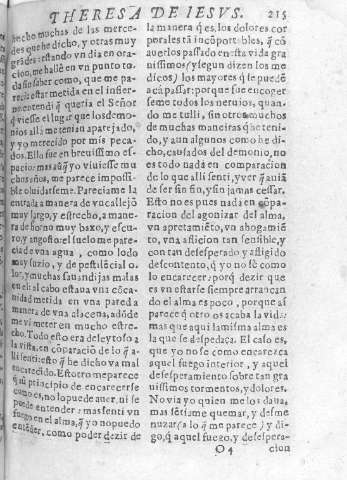 THERESA DE IESVS. 215
hecho muchas de las merce-
des que he dicho, y otras muy
grãdes: estando vn dia en ora-
cion, me hallè en vn punto to-
da sin saber como, que me pa-
recia estar metida en el infier-
no: entendi q̃ queria el Señor
q̃ viesse el lugar que los demo-
nios allà me tenian aparejado,
y yo merecido por mis peca-
dos. Ella fue en breuissimo es-
pacio: mas aũq̃ yo viuiesse mu-
chos años, me parece impossi-
ble oluidarseme. Pareciame la
entrada a manera de vn callejõ
muy largo, y estrecho, a mane-
ra de horno muy baxo, y escu-
ro, y angosto: el suelo me pare-
cia de vna agua, como lodo
muy suzio, y de pestilẽcial o-
lor, y muchas sauandijas malas
en el: al cabo estaua vna cõca-
uidad metida en vna pared a
manera de vna alacena, adõde
me vi meter en mucho estre-
cho. Todo esto era deleytoso a
la vista, en cõparaciõ de lo q̃ a-
lli senti: esto q̃ he dicho va mal
encarecido. Esto otro me parece
que aũ principio de encarecerse
como es, no lo puede auer, ni se
puede entender: mas senti vn
fuego en el alma, q̃ yo no puedo
entẽder, como poder dezir de
la manera q̃ es, los dolores cor-
porales tã incõportibles, q̃ cõ
auerlos passado en esta vida gra
uissimos (y segun dizen los me-
dicos) los mayores q̃ se puedẽ
acà passar: porque fue encoger
seme todos los neruios, quan-
do me tulli, sin otros muchos
de muchas maneiras que he teni-
do, y aun algunos como he di-
cho, causados del demonio, no
es todo nada en comparacion
de lo que alli senti, y ver q̃ auiã
de ser sin fin, y sin jamas cessar.
Esto no es pues nada en cõpa-
racion del agonizar del alma,
vn apretamiẽto, vn ahogamiẽ
to, vna aflicion tan sensible, y
con tan desesperado, y afligido
descontento, q̃ yo no sè como
lo encarecer: porq̃ dezir que
es vn estarse siempre arrancan
do el alma es poco, porque aũ
parece q̃ otro os acaba la vida:
mas aqui la misma alma es
la que se despedaça. El caso es,
que yo no sè como encarezca
aquel fuego interior, y aquel
desesperamiento sobre tan gra
uissimos tormentos, y dolores.
No via yo quien me los daua,
mas sẽtiame quemar, y desme
nuzar (a lo q̃ me parece) y di-
go, q̃ aquel fuego, y desespera-
O 4 cion